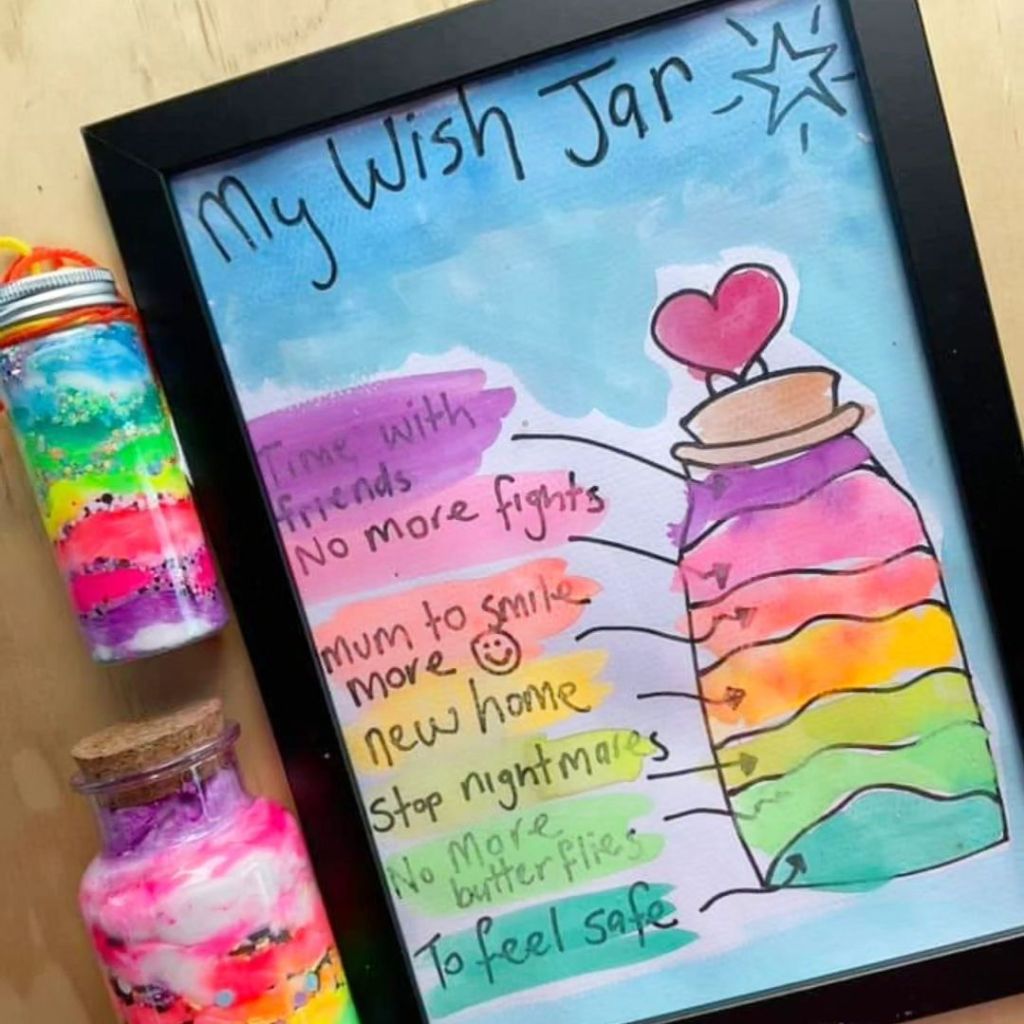 My Wish Jar
Time with
friends
No more fights
Mum to smile
more
new home
Stop nightmares
No More
butterflies
To feel safe